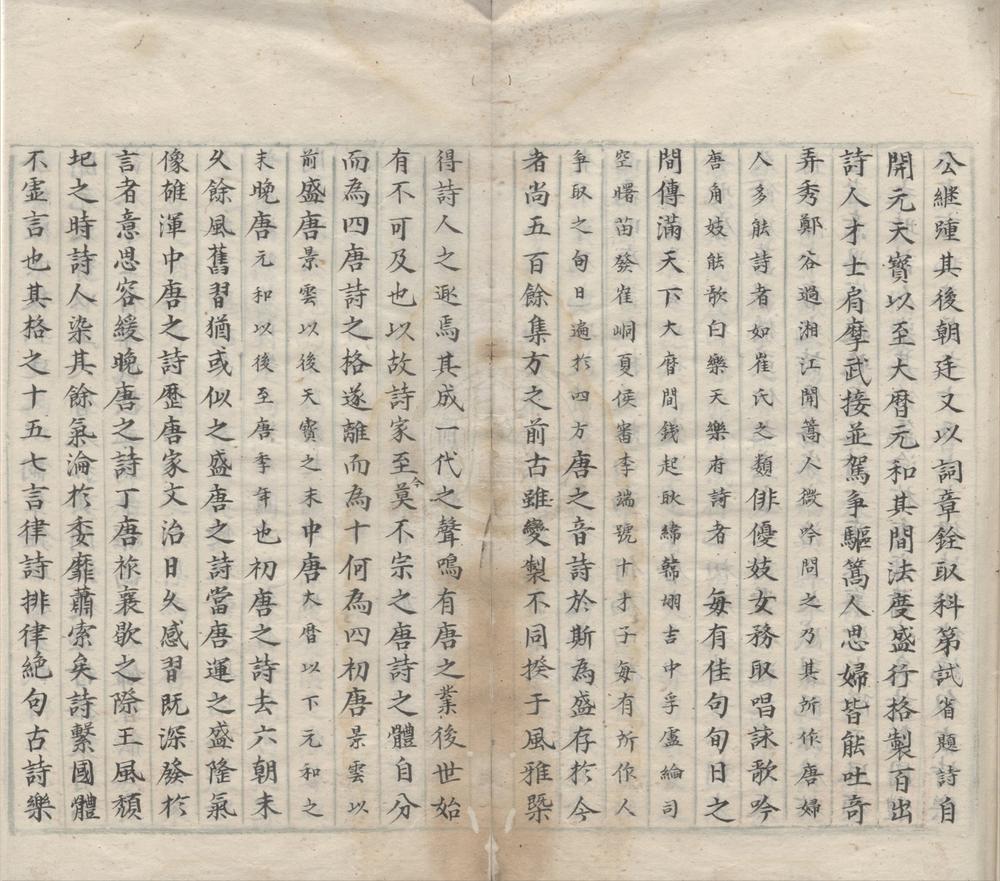 公継踵其後朝廷又以詞章銓取科第試省題詩自
開元天寳以至大暦元和其間法度盛行格製百出
詩人才士肩摩武接並駕争驅篙人思婦皆能吐奇
弄秀鄭谷過湘江聞篙人微吟問之乃其所作唐婦
人多能詩者如崔氏之類俳優妓女務取唱詠歌吟
唐角妓能歌白樂天樂府詩者毎有佳句旬日之
間傳滿天下大暦間錢起耿緯韓翃吉中孚盧綸司
空曙苗發崔峒夏侯審李端號十才子每有所作人
争取之旬日遍於四方唐之音詩於斯為盛存於今
者尚五百餘集方之前古雖變製不同揆于風雅槩
得詩人之遺焉其成一代之聲鳴有唐之業後世始
有不可及也以故詩家至今莫不宗之唐詩之體自分
而為四唐詩之格遂離而為十何為四初唐景雲以
前盛唐景雲以後天寳之末中唐大暦以下元和之
末晩唐元和以後至唐季年也初唐之詩去六朝未
久餘風舊習猶或似之盛唐之詩當唐運之盛隆氣
像雄渾中唐之詩歷唐家文治日久感習既深發於
言者意思容緩晚唐之詩丁唐祚衰歇之際王風頹
圮之時詩人染其餘氣淪於委靡蕭索矣詩繫國體
不虚言也其格之十五七言律詩排律絶句古詩樂